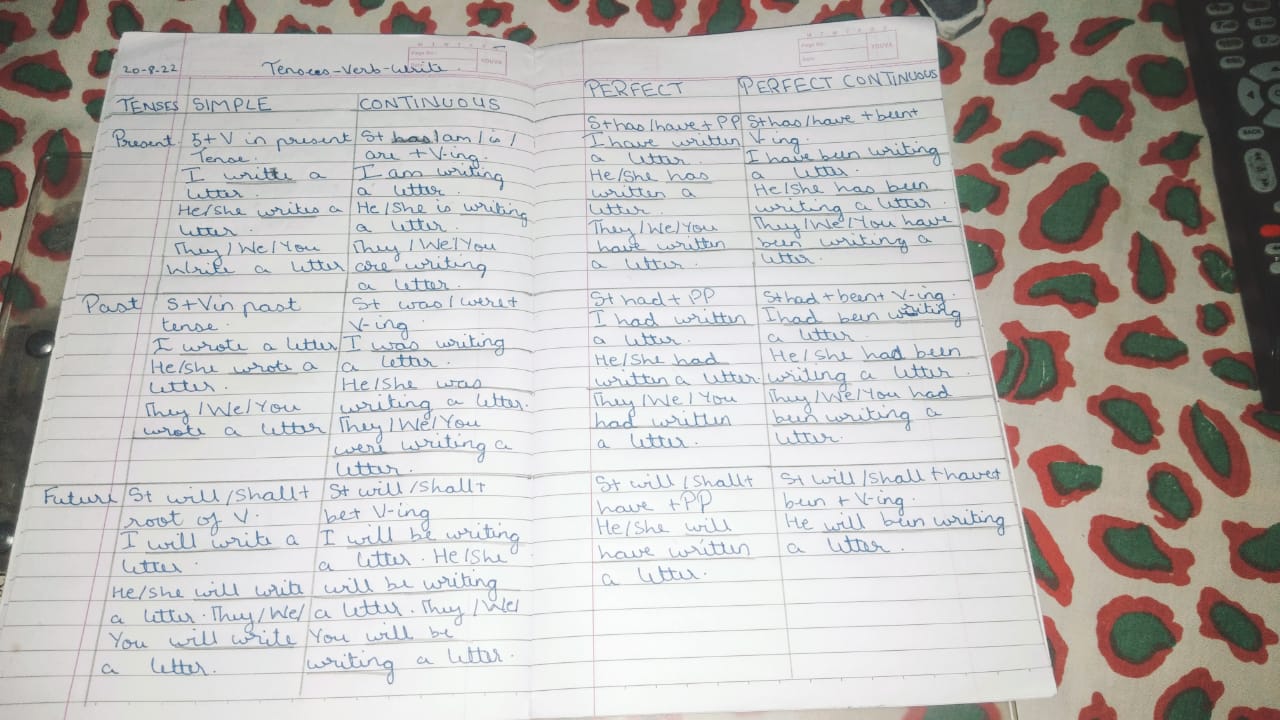 20-8-22
Tenses-Verb-Write.
TENSES
SIMPLE
CONTINUOUS
PERFECT
PERFECT CONTINUOUS
Present
S+V in present
Tense.
I write a
letter.
He/She writes a
letter.
They/We/You
Write a letter
S+ has/am/is/
are +V-ing.
I am writing
a letter.
He/She is writing
a letter.
They/We/You
are writing
a letter.
S+has/have+PP
I have written
a letter.
He/She has
written a
letter.
They/We/You
have written
a letter.
S+has/have+been+
V-ing.
I have been writing
a letter.
He/She has been
writing a letter.
They/We/You have
been writing a
letter.
Past
S+V in past
tense.
I wrote a letter
He/She wrote a
letter.
They/We/You
wrote a letter
S+ was/were+
V-ing.
I was writing
a letter.
He/She was
writing a letter.
They/We/You
were writing a
letter.
S+had+PP
I had written
a letter.
He/She had
written a letter.
They/We/You
had written
a letter.
S+had+been+ V-ing.
I had been writing
a letter.
He/She had been
writing a letter.
They/We/You had
been writing a
letter.
Future
S+ will/Shall+
root of V.
I will write a
letter.
He/She will write
a letter. They/We/
You will write
a letter.
S+ will/Shall+
be+ V-ing
I will be writing
a letter. He/She
will be writing
a letter. They/We/
You will be
writing a letter.
S+ will/Shall+
have +PP
He/She will
have written
a letter.
S+ will/Shall+have+
been + V-ing.
He will been writing
a letter.
Page No.:
YOUVA
Page No.:
Date:
YOUVA
BACK